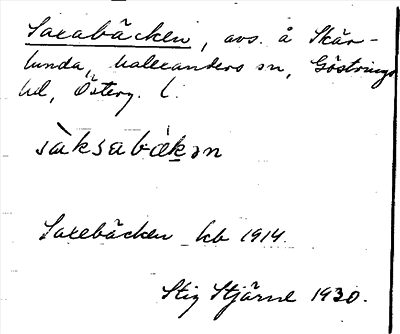 Saxabäcken, avs. å Skär-
lunda, Kalexanders sn, Göstrings
hd, Österg. l.
sàksabæ̀kən
Saxebäcken kb 1914.
Stig Stjärne 1930.